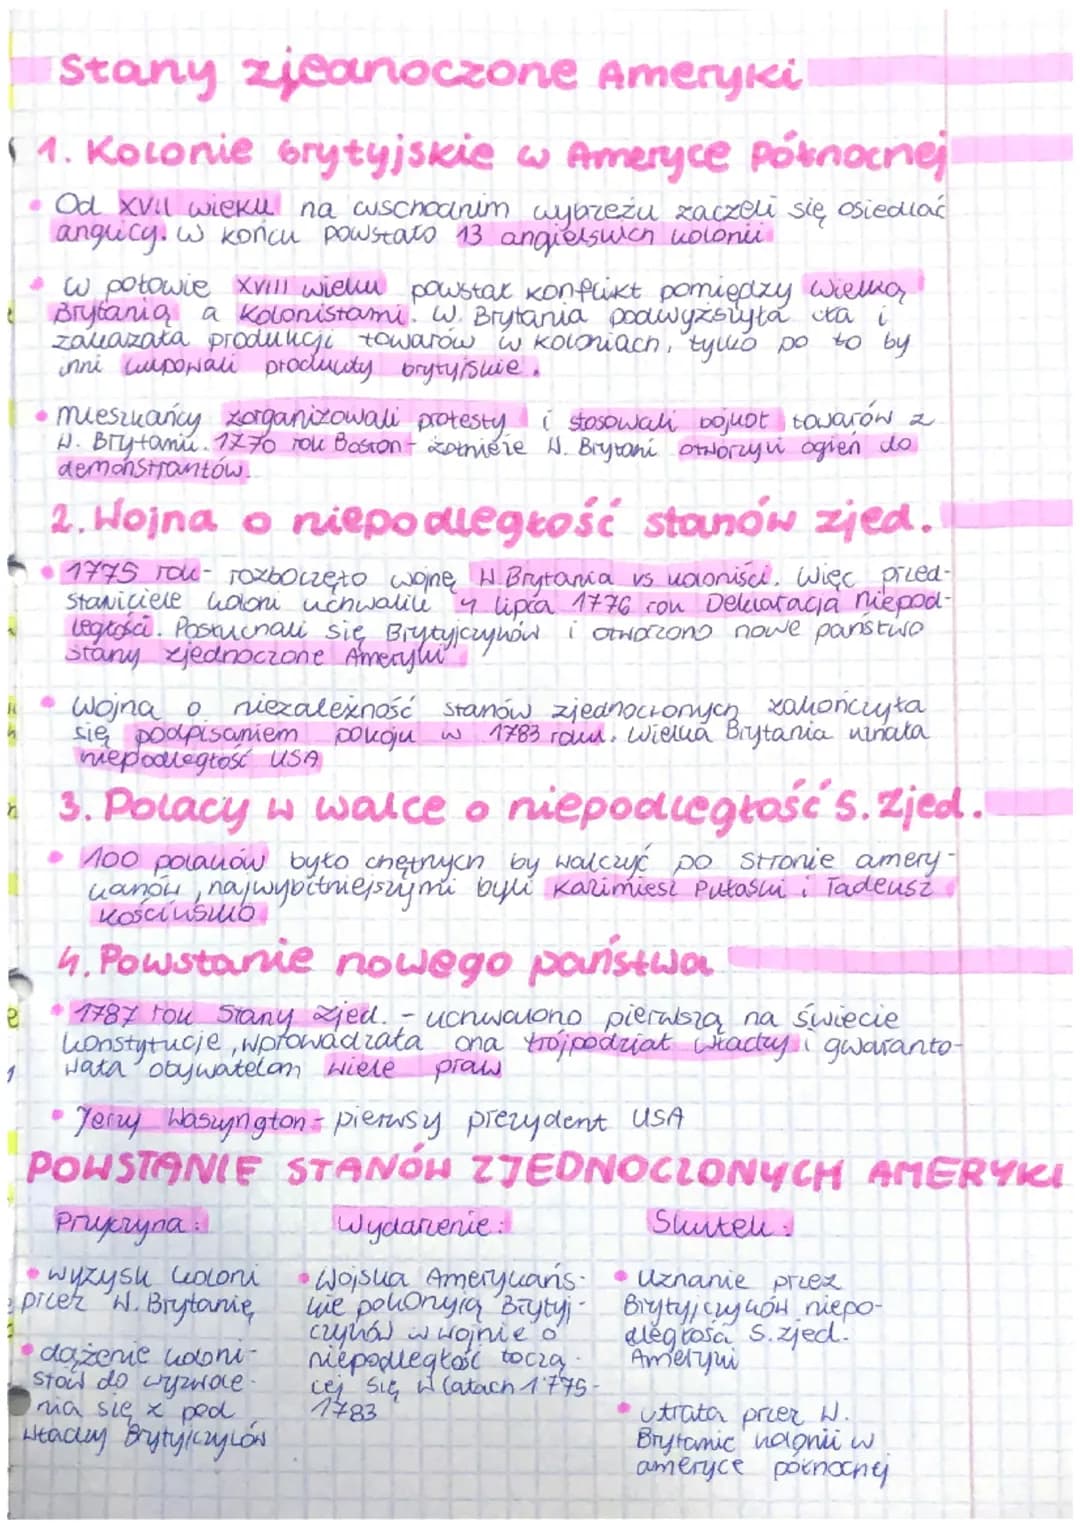 Stany zjednoczone Ameryki
1. Kolonie brytyjskie w Ameryce Północnej
• Od XVII wieku na wschodnim wybrzeżu zaczeli się osiedlać
anglicy. W końcu powstało 13 angielskich kolonii
• W połowie XVIII wieku powstał konflikt pomiędzy Wielką
Brytanią a Kolonistami. W. Brytania podwyższyła cła i
zakazała produkcji towarów w koloniach, tylko po to by
inni kupowali produkty brytyjskie.
• Mieszkańcy zorganizowali protesty i stosowali bojkot towarów z
W. Brytanii. 1770 rok Boston - żołnierze W. Brytani otworzyli ogień do
demonstrantów.
2. Wojna o niepodległość stanów zjed.
• 1775 rok - rozboczęto wojnę W. Brytania vs koloniści. Więc przed-
stawiciele koloni uchwalili 4 lipca 1776 rok Deklaracja niepod-
ległości. Posłuchali się Brytyjczyków i otworzono nowe państwo
Stany zjednoczone Ameryki
• Wojna o niezależność stanów zjednoczonych zakończyła
się podpisaniem pokoju w 1783 roku. Wielka Brytania uznała
niepodległość USA
3. Polacy w walce o niepodległość S. Zjed.
• 100 polaków było chętnych by walczyć po stronie amery-
kanów, najwybitniejszymi byli Kazimiesz Pułaski i Tadeusz
Kościuszko
4. Powstanie nowego państwa
• 1787 rok Stany zjed. - uchwalono pierwszą na świecie
konstytucje, wprowadzała ona trójpodział władzy i gwaranto-
wała obywatelom wiele praw
• Jerzy Waszyngton - pierwsy prezydent USA
POWSTANIE STANÓW ZJEDNOCZONYCH AMERYKI
Przyczyna: Wydarzenie: Skutek:
• wyzysk koloni
przez W. Brytanię
• dążenie koloni-
stów do wyzwole-
nia się z pod
władzy Brytyjczyków
• Wojska Amerykańs-
kie pokonują Brytyj-
czyków w wojnie o
niepodległość toczą-
cej się w latach 1775-
1783
• Uznanie przez
Brytyjczyków niepo-
dległości S. zjed.
Ameryki
• utrata przez W.
Brytanie kolonii w
ameryce północnej